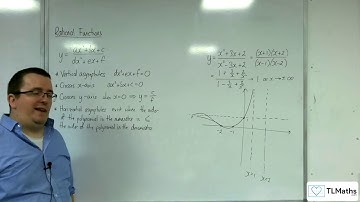 Rational Functions
y = ax²+bx+c / dx²+ex+f
• Vertical asymptotes dx²+ex+f=0
• Crosses x-axis ax²+bx+c=0
• Crosses y-axis when x=0 ⇒ y = c/f
• Horizontal asymptotes exist where the order
of the polynomial in the numerator is ≤
the order of the polynomial in the denominator
y = x²+3x+2 / x²-3x+2 = (x+1)(x+2) / (x-1)(x-2)
= 1 + 3/x + 2/x² / 1 - 3/x + 2/x² → 1 as x → ±∞
-2
-1
x=1
x=2
TLMaths